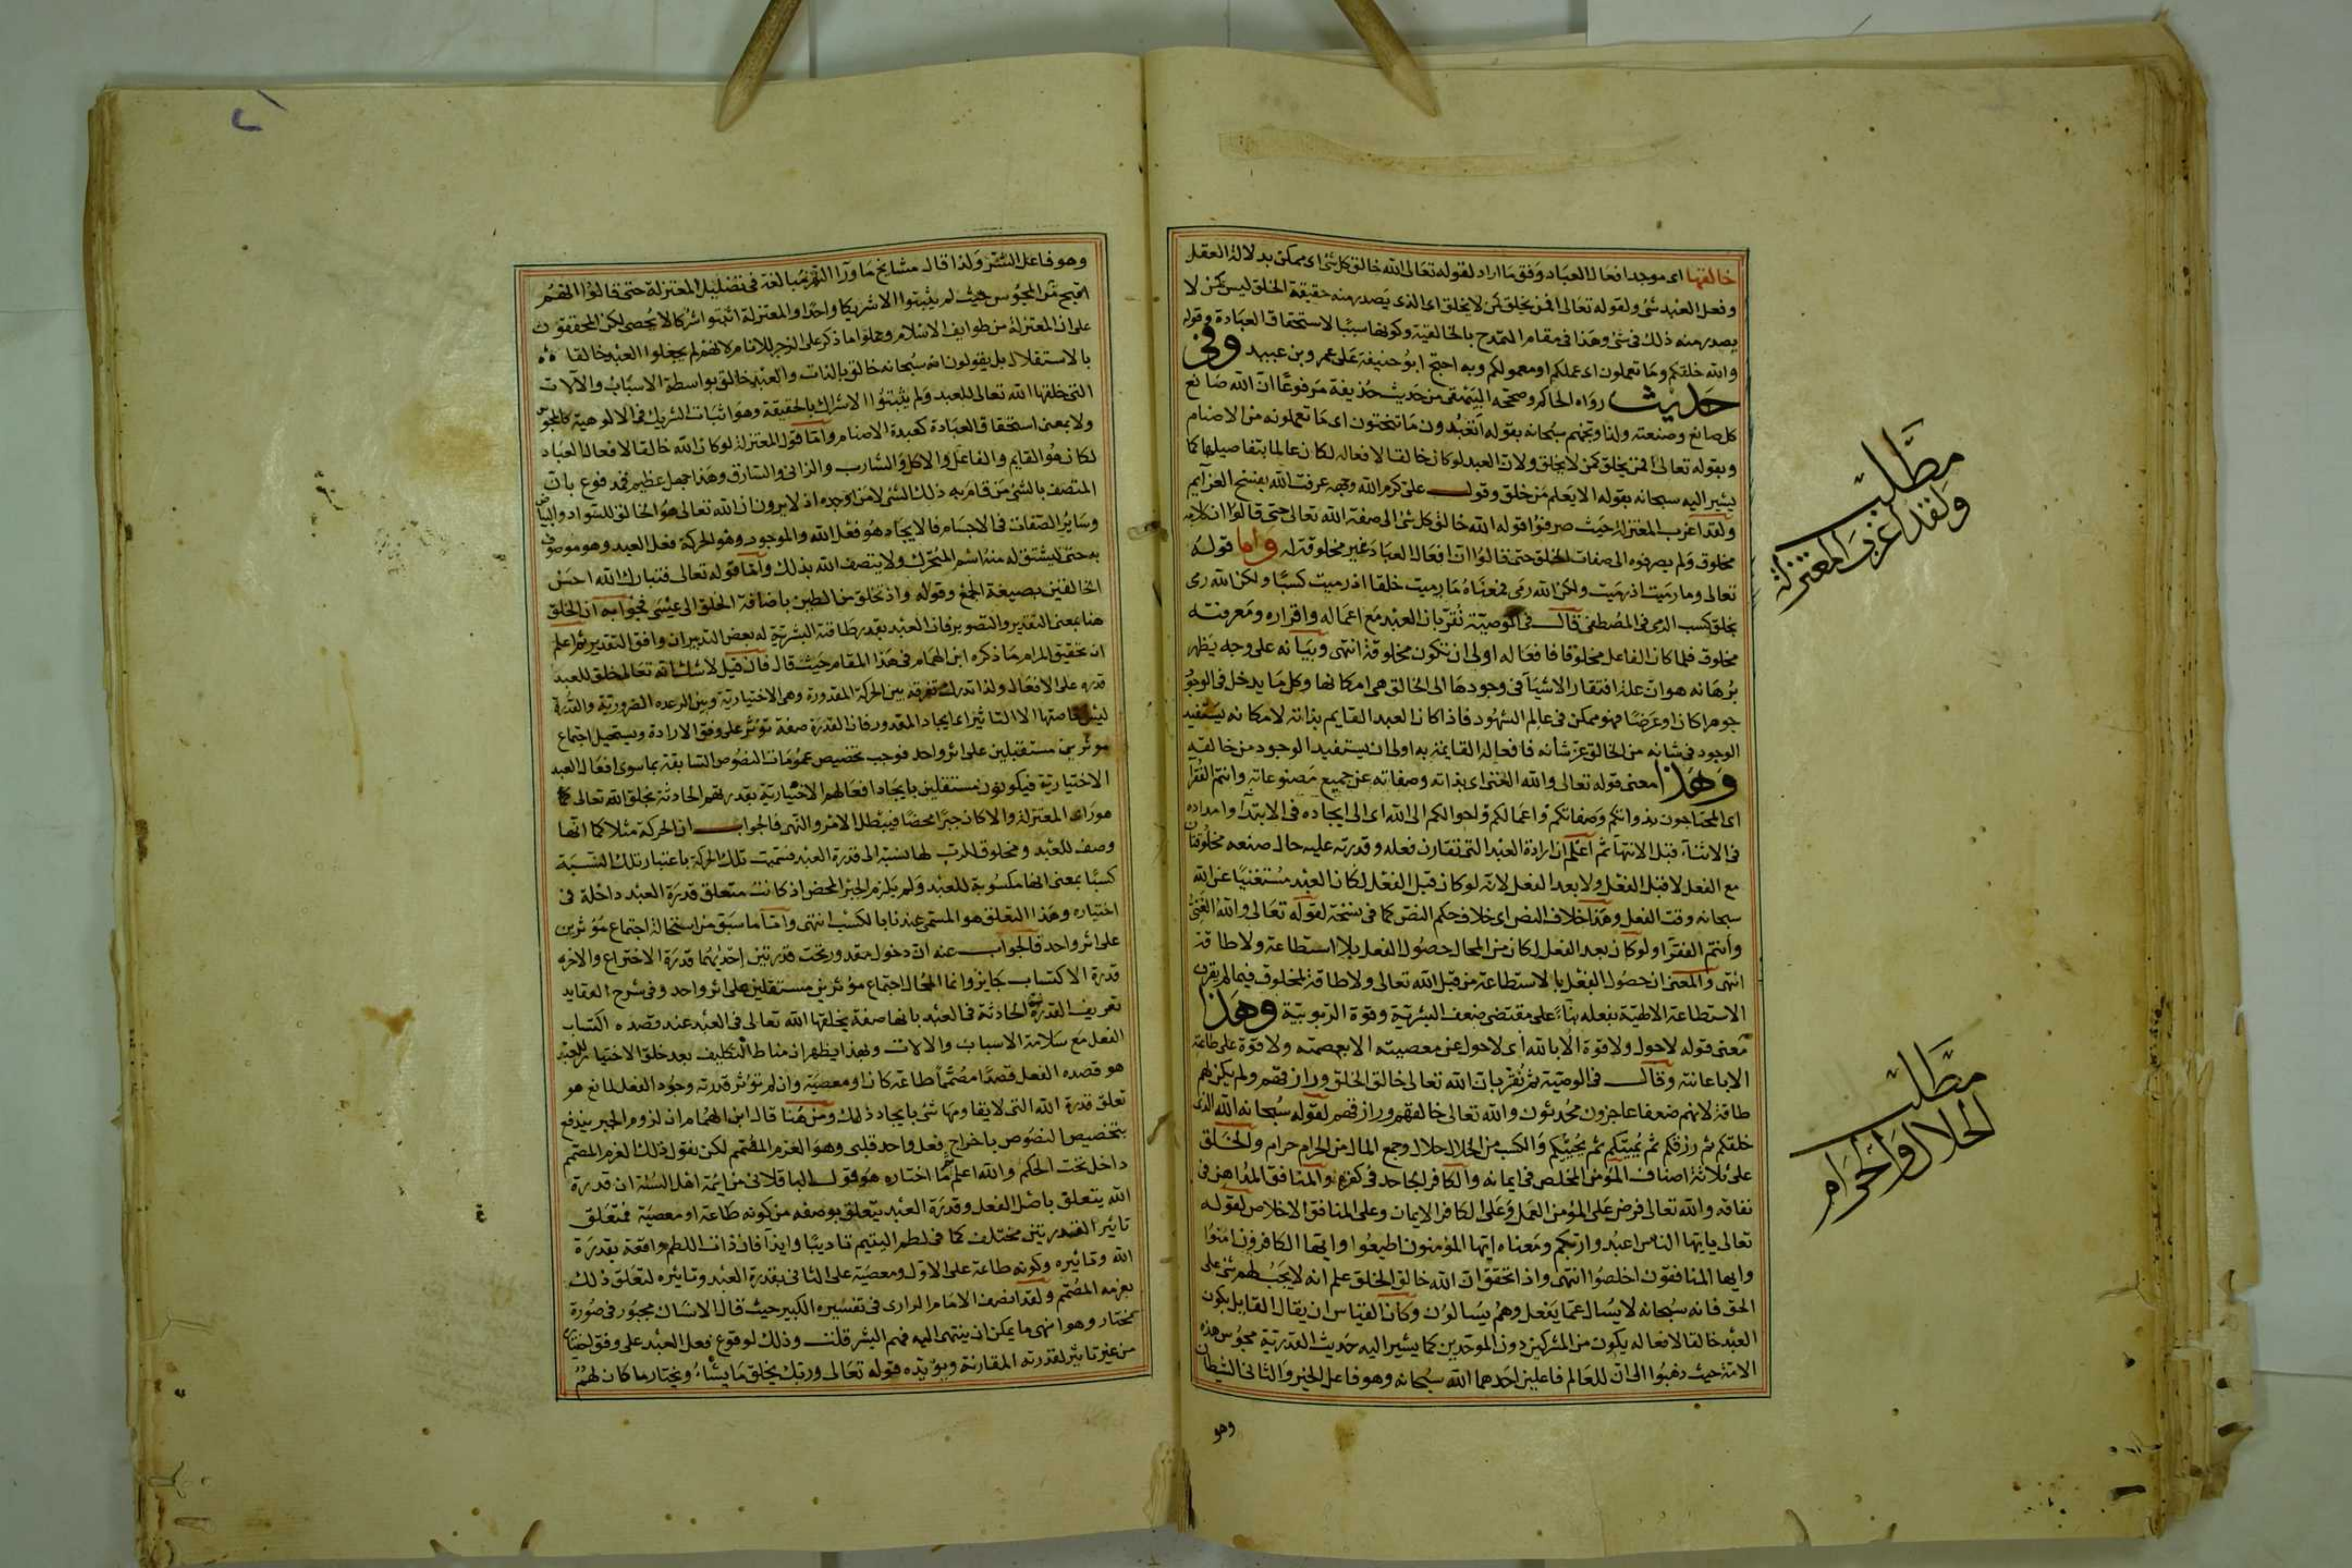 خالقها اى موجد افعال العباد وفق ما اراد لقوله تعالى الله خالق كل شئ اى ممكن بدلالة العقل
وفعل العبد شئ ولقوله تعالى افمن يخلق كمن لا يخلق اى الذى يصدر منه حقيقة الخلق ليس كمن لا
يصدر منه ذلك فى شئ وهذا فى مقام التمدح بالخالقية وكونها سببا لاستحقاق العبادة وقوله
والله خلقكم وما تعملون اى عملكم او معمولكم وبه احتج ابو حنيفة على عمرو بن عبيد وفى
حديث رواه الحاكم وصححه البيهقى من حديث حذيفة مرفوعا ان الله صانع
كل صانع وصنعته ولذا وبخهم سبحانه بقوله اتعبدون ما تنحتون اى ما تعملونه من الاصنام
وبقوله تعالى افمن يخلق كمن لا يخلق ولان العبد لو كان خالقا لافعاله لكان عالما بتفاصيلها كما
يشير اليه سبحانه بقوله الا يعلم من خلق وقول على كرم الله وجهه عرفت الله بفسخ العزايم
ولقد اغرب المعتزلة حيث صرفوا قوله الله خالق كل شئ الى صفة الله تعالى حتى قالوا ان كلامه
مخلوق ولم يصرفوه الى صفات الخلق حتى قالوا ان افعال العباد غير مخلوقة له واما قوله
تعالى وما رميت اذ رميت ولكن الله رمى فمعناه ما رميت خلقا اذ رميت كسبا ولكن الله رمى
بخلق كسب الرمى فى المصطفى قال فى الوصية نقر بان العبد مع اعماله واقراره ومعرفته
مخلوق فلما كان الفاعل مخلوقا فافعاله اولى ان تكون مخلوقة انتهى وبيانه على وجه يظهر
برهانه هو ان علة افتقار الاشياء فى وجودها الى الخالق هى امكانها وكل ما يدخل فى الوجود
جوهرا كان او عرضا فهو ممكن فى عالم الشهود فاذا كان العبد القايم بذاته لامكانه يستفيد
الوجود فى شانه من الخالق عز شانه فافعاله القايمة به اولى ان يستفيد الوجود من خالقه
وهذا معنى قوله تعالى والله الغنى اى بذاته وصفاته عن جميع مصنوعاته وانتم الفقرا
اى المحتاجون بذواتكم وصفاتكم واعمالكم واحوالكم الى الله اى الى ايجاده فى الابتدا وامداده
فى الاثناء قبل الانتهاء ثم اعلم ان ارادة العبد التى تقارن فعله وقدرته عليه حال صنعه مخلوقتان
مع الفعل لا قبل الفعل ولا بعد الفعل لانه لو كان قبل الفعل لكان العبد مستغنيا عن الله
سبحانه وقت الفعل وهذا خلاف النص اى خلاف حكم النص كما فى نسخة لقوله تعالى والله الغنى
وانتم الفقرا ولو كان بعد الفعل لكان من المحال حصول الفعل بلا استطاعة ولا طاقة
انتهى والمعنى ان حصول الفعل بلا استطاعة من قبل الله تعالى ولا طاقة لمخلوق فيما لم يقرن
الاستطاعة الالهية بفعله بناء على مقتضى ضعف البشرية وقوة الربوبية وهذا
معنى قوله لا حول ولا قوة الا بالله اى لا حول عن معصيته الا بعصمته ولا قوة على طاعته
الا باعانته وقال فى الوصية ثم نقر بان الله تعالى خالق الخلق ورازقهم ولم يكن لهم
طاقة لانهم ضعفا عاجزون محدثون والله تعالى خالقهم ورازقهم لقوله سبحانه الله الذى
خلقكم ثم رزقكم ثم يميتكم ثم يحييكم والكسب من الحلال حلال وجمع المال من الحرام حرام والخلق
على ثلاثة اصناف المؤمن المخلص فى ايمانه والكافر الجاحد فى كفره والمنافق المداهن فى
نفاقه والله تعالى فرض على المؤمن العمل وعلى الكافر الايمان وعلى المنافق الاخلاص لقوله
تعالى يايها الناس اعبدوا ربكم ومعناه ايها المؤمنون اطيعوا وايها الكافرون امنوا
وايها المنافقون اخلصوا انتهى واذا تحقق ان الله خالق الخلق علم انه لا يجب لهم شئ على
الحق فانه سبحانه لا يسال عما يفعل وهم يسالون وكان القياس ان يقال القايل بكون
العبد خالقا لافعاله يكون من المشركين دون الموحدين كما يشير اليه حديث القدرية مجوس هذه
الامة حيث ذهبوا الى ان للعالم فاعلين احدهما الله سبحانه وهو فاعل الخير والثانى الشيطان
وهو
مطلب
ولقد اغرب المعتزلة
مطلب
الحلال والحرام
وهو فاعل الشر ولذا قال مشايخ ما ورا النهر مبالغة فى تضليل المعتزلة حتى قالوا انهم
اقبح من المجوس حيث لم يثبتوا الا شريكا واحدا والمعتزلة اثبتوا شركا لا يحصى لكن المحققون
على ان المعتزلة من طوايف الاسلام وحملوا ما ذكر على الزجر للانام لانهم لم يجعلوا العبد خالقا
بالاستقلال بل يقولون انه سبحانه خالق بالذات والعبد خالق بواسطة الاسباب والآلات
التى خلقها الله تعالى للعبد ولم يثبتوا الاشراك بالحقيقة وهو اثبات الشريك فى الالوهية كالمجوس
ولا بمعنى استحقاق العبادة كعبدة الاصنام واما قول المعتزلة لو كان الله خالقا لافعال العباد
لكان هو القايم والفاعل والآكل والشارب والزانى والسارق وهذا جهل عظيم فمدفوع بان
المتصف بالشئ من قام به ذلك الشئ لا من اوجده اذ لا يرون ان الله تعالى هو الخالق للسواد والبياض
وساير الصفات فى الاجسام فالايجاد هو فعل الله والموجود وهو الحركة فعل العبد وهو موصوف
به حتى يشتق له منه اسم المتحرك ولا يتصف الله بذلك واما قوله تعالى فتبارك الله احسن
الخالقين بصيغة الجمع وقوله واذ تخلق من الطين باضافة الخلق الى عيسى فجوابه ان الخلق
هنا بمعنى التقدير والتصوير فان العبد بقدر طاقته البشرية له بعض التدبير ان وافق التقدير ثم اعلم
ان تحقيق المرام ما ذكره ابن الهمام فى هذا المقام حيث قال فان قيل لا شك انه تعالى خلق للعبد
قدرة على الافعال ولذا ندرك تفرقة بين الحركة المقدورة وهى الاختيارية وبين الرعدة الضرورية والقدرة
ليس خاصتها الا التاثير اى ايجاد المقدور فان القدرة صفة تؤثر على وفق الارادة ويستحيل اجتماع
موثرين مستقبلين على اثر واحد فوجب تخصيص عمومات النصوص السابقة بما سوى افعال العبد
الاختيارية فيكونون مستقلين بايجاد افعالهم الاختيارية بقدرتهم الحادثة بخلق الله تعالى كما
هو راى المعتزلة والا كان جبرا محضا فيبطل الامر والنهى فالجواب ان الحركة مثلا كما انها
وصف للعبد ومخلوق للرب لها نسبة الى قدرة العبد فسميت تلك الحركة باعتبار تلك النسبة
كسبا بمعنى انها مكسوبة للعبد ولم يلزم الجبر المحض اذ كانت متعلق قدرة العبد داخلة فى
اختياره وهذا التعلق هو المسمى عندنا بالكسب انتهى واما ما سبق من استحالة اجتماع مؤثرين
على اثر واحد فالجواب عنه ان دخول مقدور تحت قدرتين احديهما قدرة الاختراع والاخرى
قدرة الاكتساب جايز وانما المحال اجتماع مؤثرين مستقلين على اثر واحد وفى شرح العقايد
تعريف القدرة الحادثة فى العبد بانها صفة يخلقها الله تعالى فى العبد عند قصده اكتساب
الفعل مع سلامة الاسباب والالات ولهذا يظهر ان مناط التكليف بعد خلق الاختيار للعبد
هو قصده الفعل قصدا مصمما طاعة كان او معصية وان لم تؤثر قدرته وجود الفعل لمانع هو
تعلق قدرة الله التى لا يقاومها شئ بايجاد ذلك ومن هنا قال ابن الهمام ان لزوم الجبر يندفع
بتخصيص النصوص باخراج فعل واحد قلبى وهو العزم المصمم لكن نقول ذلك العزم المصمم
داخل تحت الحكم والله اعلم ثم ما اختاره هو قول الباقلانى من ايمة اهل السنة ان قدرة
الله يتعلق باصل الفعل وقدرة العبد يتعلق بوصفه من كونه طاعة او معصية فمتعلق
تاثير القدرتين مختلف كما فى لطم اليتيم تاديبا وايذا فان ذات اللطم واقعة بقدرة
الله وتاثيره وكونه طاعة على الاول ومعصية على الثانى بقدرة العبد وتاثيره لتعلق ذلك
بعزمه المصمم ولقد انصف الامام الرازى فى تفسيره الكبير حيث قال الانسان مجبور فى صورة
مختار وهو انهى ما يمكن ان ينتهى اليه فهم البشر قلت وذلك لوقوع فعل العبد على وفق اختياره
من غير تاثير لقدرته المقارنة ويؤيده قوله تعالى وربك يخلق ما يشاء ويختار ما كان لهم